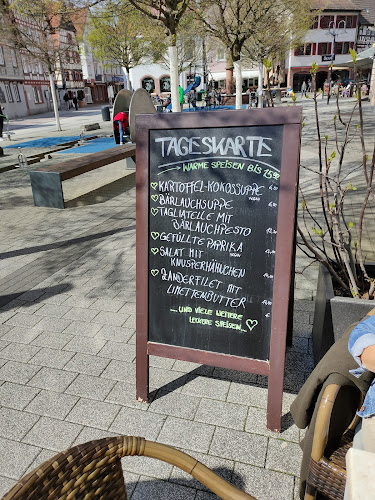 TAGESKARTE
WARME SPEISEN BIS 15.00
KARTOFFEL-KOKOSSUPPE
VEGAN
BÄRLAUCHSUPPE
TAGLIATELLE MIT
BÄRLAUCHPESTO
GEFÜLLTE PAPRIKA
VEGAN
SALAT MIT
KNUSPERHÄHNCHEN
ZANDERFILET MIT
LIMETTENBUTTER
...UND VIELE WEITERE
LECKERE SPEISEN...